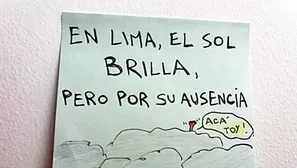 EN LIMA, EL SOL
BRILLA,
PERO POR SU AUSENCIA
ACÁ
TOY!